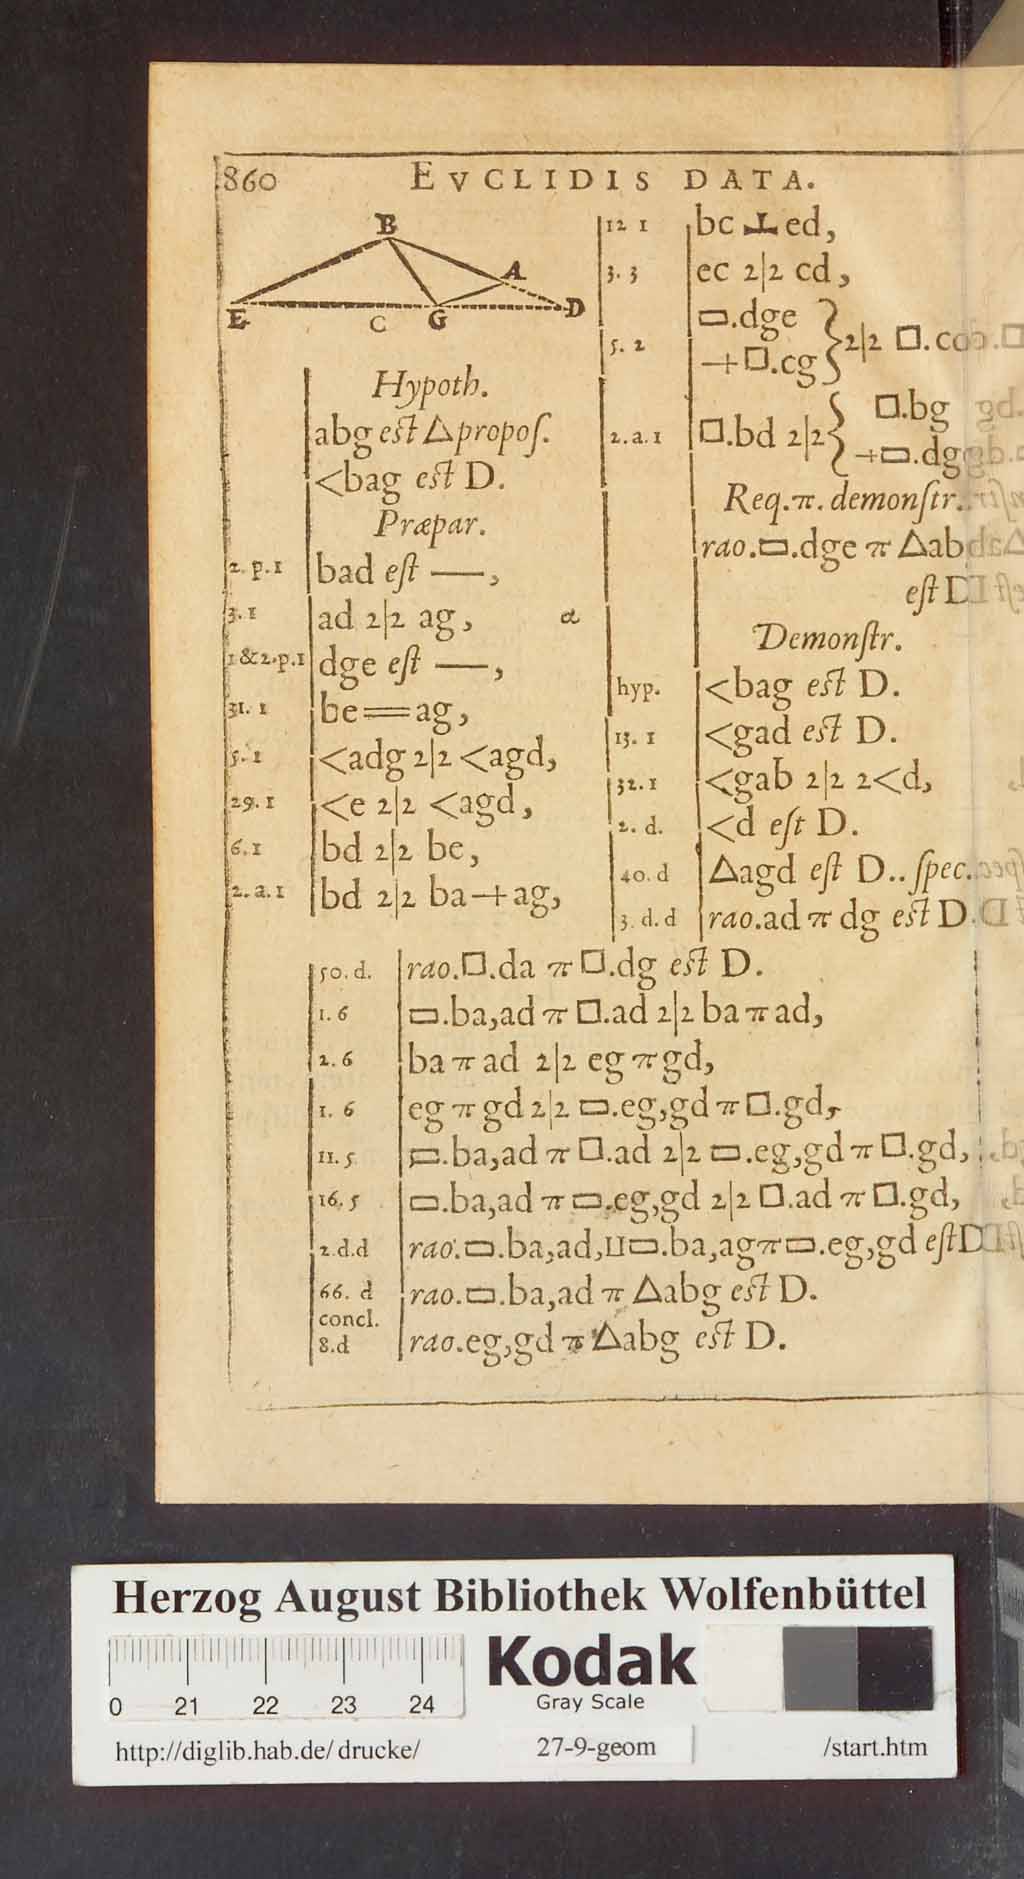 860 EVCLIDIS DATA.
B
A
E C G D
Hypoth.
abg est △ propoſ.
<bag est D.
Præpar.
2. p. 1 bad eſt —,
3. 1 ad 2|2 ag, α
1 & 2. p. 1 dge eſt —,
31. 1 be=ag,
5. 1 <adg 2|2 <agd,
29. 1 <e 2|2 <agd,
6. 1 bd 2|2 be,
2. a. 1 bd 2|2 ba+ag,
12 1 bc ⊥ ed,
3. 3 ec 2|2 cd,
▭.dge
5. 2 +□.cg } 2|2 □.cd
2. a. 1 □.bd 2|2 { □.bg
+▭.dg
Req. π. demonſtr.
rao. ▭.dge π △ab
eſt D
Demonſtr.
hyp. <bag est D.
13. 1 <gad est D.
32. 1 <gab 2|2 2<d,
2. d. <d eſt D.
40. d △agd eſt D.. ſpec.
3. d. d rao. ad π dg est D.
50. d. rao. □.da π □.dg est D.
1. 6 ▭.ba,ad π □.ad 2|2 ba π ad,
2. 6 ba π ad 2|2 eg π gd,
1. 6 eg π gd 2|2 ▭.eg,gd π □.gd,
11. 5 ▭.ba,ad π □.ad 2|2 ▭.eg,gd π □.gd,
16. 5 ▭.ba,ad π ▭.eg,gd 2|2 □.ad π □.gd,
2. d. d rao. ▭.ba,ad,⊔▭.ba,ag π ▭.eg,gd eſt D
66. d rao. ▭.ba,ad π △abg est D.
concl.
8. d rao. eg,gd π △abg est D.
Herzog August Bibliothek Wolfenbüttel
Kodak
Gray Scale
0 21 22 23 24
http://diglib.hab.de/drucke/ 27-9-geom /start.htm